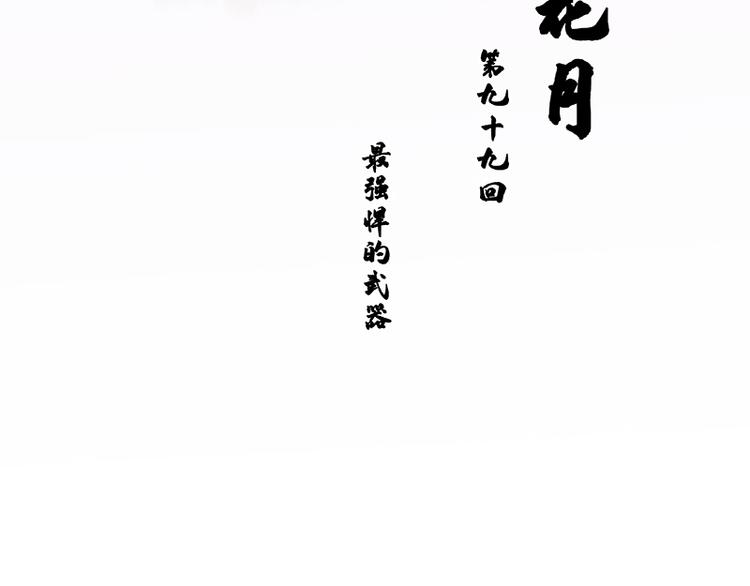 花月
第九十九回
最强悍的武器